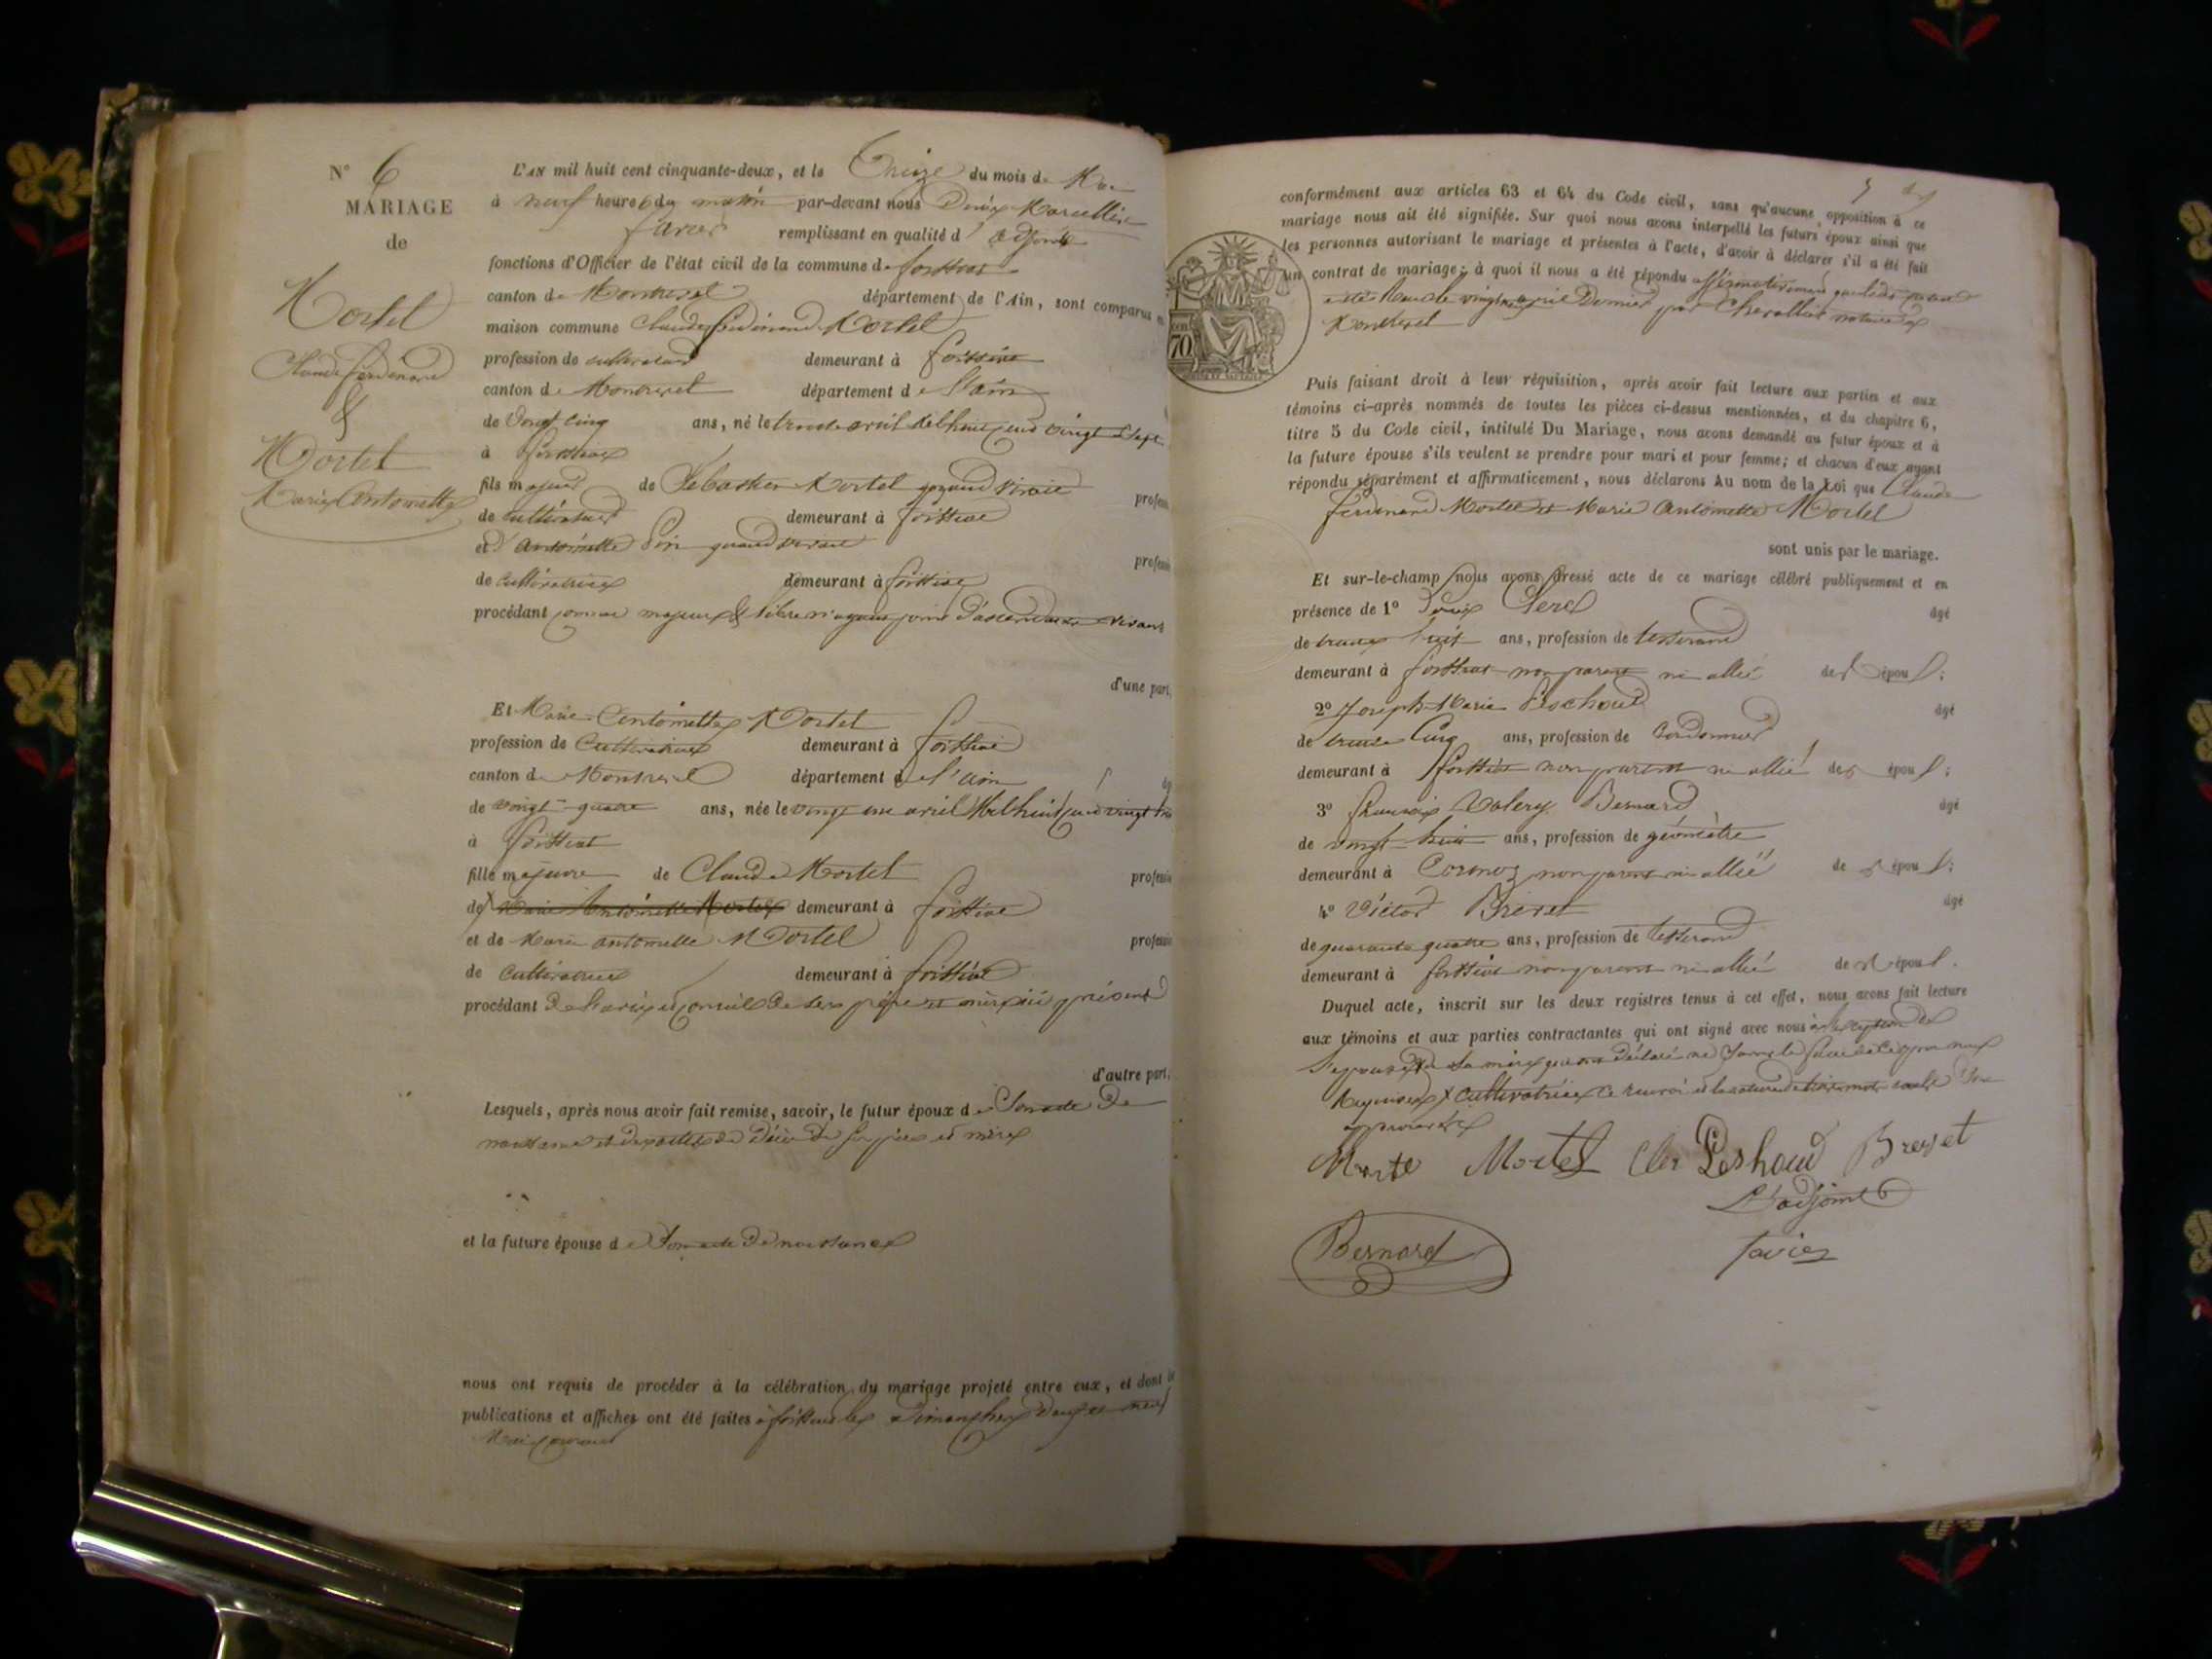 N° 6
MARIAGE
de
Mortel
Claude ferdinand
&
Mortel
Marie Antoinette
L'AN mil huit cent cinquante-deux, et le treize du mois de Mai
à neuf heures du matin par-devant nous Denis Marcellin
favier remplissant en qualité d'adjoint
fonctions d'Officier de l'état civil de la commune de foissiat
canton de Montrevel département de l'Ain, sont comparus
maison commune Claude ferdinand Mortel
profession de cultivateur demeurant à foissiat
canton de Montrevel département de l'ain
de vingt cinq ans, né le trente avril Mil huit cent vingt sept
à foissiat
fils majeur de Sébastien Mortel quand vivait
de cultivateur demeurant à foissiat
et d'antoinette quand vivait
de cultivatrice demeurant à foissiat
procédant comme majeur & libre n'ayant point d'ascendants vivant
d'une part,
Et Marie Antoinette Mortel
profession de Cultivatrice demeurant à foissiat
canton de Montrevel département de l'ain
de vingt-quatre ans, née le vingt un avril Mil huit cent vingt
à foissiat
fille majeure de Claude Mortel
de Marie Antoinette Mortel demeurant à foissiat
et de Marie antoinette Mortel
de Cultivatrice demeurant à foissiat
procédant de l'avis et conseil de ses père et mère ici présent
d'autre part,
Lesquels, après nous avoir fait remise, savoir, le futur époux de l'acte de
naissance et des actes de décès de ses père et mère
et la future épouse de l'acte de naissance
nous ont requis de procéder à la célébration du mariage projeté entre eux, et dont
publications et affiches ont été faites à foissiat les Dimanches deux et neuf
Mai courant
conformément aux articles 63 et 64 du Code civil, sans qu'aucune opposition à ce
mariage nous ait été signifiée. Sur quoi nous avons interpellé les futurs époux ainsi que
les personnes autorisant le mariage et présentes à l'acte, d'avoir à déclarer s'il a été fait
un contrat de mariage; à quoi il nous a été répondu affirmativement
a été reçu le vingt avril Dernier par Chevallier notaire à
Montrevel
70
Puis faisant droit à leur réquisition, après avoir fait lecture aux parties et aux
témoins ci-après nommés de toutes les pièces ci-dessus mentionnées, et du chapitre 6,
titre 5 du Code civil, intitulé Du Mariage, nous avons demandé au futur époux et à
la future épouse s'ils veulent se prendre pour mari et pour femme; et chacun d'eux ayant
répondu séparément et affirmativement, nous déclarons Au nom de la Loi que Claude
ferdinand Mortel et Marie Antoinette Mortel
sont unis par le mariage.
Et sur-le-champ nous avons dressé acte de ce mariage célébré publiquement et en
présence de 1° Denis Clerc âgé
de trente huit ans, profession de tisserand
demeurant à foissiat non parent ni allié des époux;
2° Joseph Marie Pochoud âgé
de trente Cinq ans, profession de Cordonnier
demeurant à foissiat non parent ni allié des époux;
3° françois Valery Bernard âgé
de vingt huit ans, profession de géomètre
demeurant à Cormoz non parent ni allié des époux;
4° Victor Brevet âgé
de quarante quatre ans, profession de tisserand
demeurant à foissiat non parent ni allié des époux.
Duquel acte, inscrit sur les deux registres tenus à cet effet, nous avons fait lecture
aux témoins et aux parties contractantes qui ont signé avec nous à l'exception de
l'épouse et sa mère qui ont déclaré ne savoir le faire de ce par nous
Requises X Cultivatrice ce renvoi et la rature de trois mots
approuvés
Mortel Mortel Cler Peshoud Brevet
L'adjoint
Bernard favier